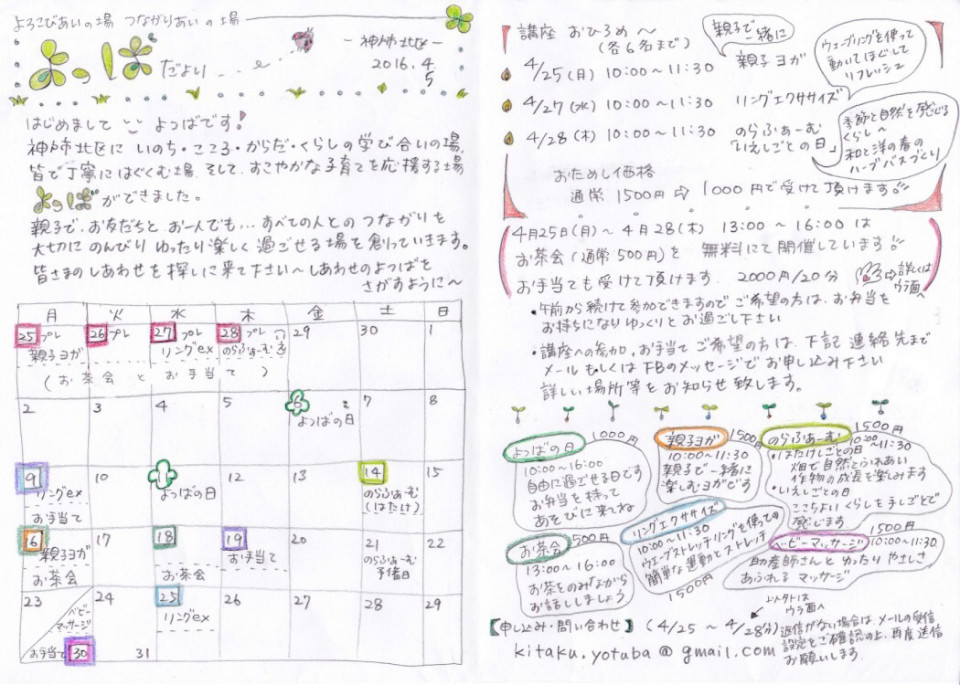 よろこびあいの場 つながりあいの場
よつば だより
ー神戸市北区ー
2016.4.5
はじめまして よつばです!
神戸市北区に いのち・こころ・からだ・くらしの学び合いの場、
皆で丁寧にはぐくむ場、そして、すこやかな子育てを応援する場
よつば ができました。
親子で、お友だちと お一人でも… すべての人との つながりを
大切に のんびり ゆったり 楽しく 過ごせる場を 創っていきます。
皆さまの しあわせを 探しに来て下さい〜 しあわせのよつばを
さがすように〜
月 火 水 木 金 土 日
25 プレ 26 プレ 27 プレ 28 プレ 29 30 1
親子ヨガ リングex のらふぁーむ
(お茶会 と お手当て)
2 3 4 5 6 7 8
よつばの日
9 10 11 12 13 14 15
リングex よつばの日 のらふぁーむ
お手当て (はたけ)
16 17 18 19 20 21 22
親子ヨガ お手当て のらふぁーむ
お茶会 お茶会 予備日
23 24 25 26 27 28 29
ベビーマッサージ リングex
お手当て 30 31
講座 おひろめ〜
(各6名まで)
親子で一緒に
4/25(月) 10:00〜11:30 親子ヨガ
ウェーブリングを使って
動いてほぐして
リフレッシュ
4/27(水) 10:00〜11:30 リングエクササイズ
4/28(木) 10:00〜11:30 のらふぁーむ
「いえしごとの日」
季節と自然を感じる
くらし〜
和と洋の春の
ハーブバスづくり
おためし価格
通常 1500円 ⇨ 1000円で受けて頂けます。
4月25日(月)〜4月28(木) 13:00〜16:00 は
お茶会(通常500円)を 無料にて開催しています!!
お手当ても受けて頂けます. 2000円/20分 ⇨詳しくは
ウラ面へ
・午前から続けて参加できますので ご希望の方は、お弁当を
お持ちになり ゆっくりと お過ごし下さい
・講座への参加、お手当て ご希望の方は、下記 連絡先まで
メール もしくは FBのメッセージで お申し込み下さい
詳しい場所等をお知らせ致します。
よつばの日 1000円
10:00〜16:00
自由に過ごせる日です
お弁当を持って
あそびに来てね
親子ヨガ 1500円
10:00〜11:30
親子で一緒に
楽しむヨガです
のらふぁーむ 1500円
10:00〜11:30
・はたけしごとの日
畑で自然とふれあい
作物の成長を楽しみます
・いえしごとの日
ここちよいくらしを手しごとで
感じます
お茶会 500円
13:00〜16:00
お茶をのみながら
お話ししましょう
リングエクササイズ
10:00〜11:30
ウェーブストレッチリングを使っての
簡単な運動とストレッチ
1500円
ベビーマッサージ 1500円
10:00〜11:30
助産師さんと ゆったり やさしさ
あふれる マッサージ
ウラ面へ
【申し込み・問い合わせ】(4/25 〜 4/28分)
kitaku.yotuba@gmail.com
返信がない場合は、メールの受信
設定をご確認の上、再度送信
お願いします.